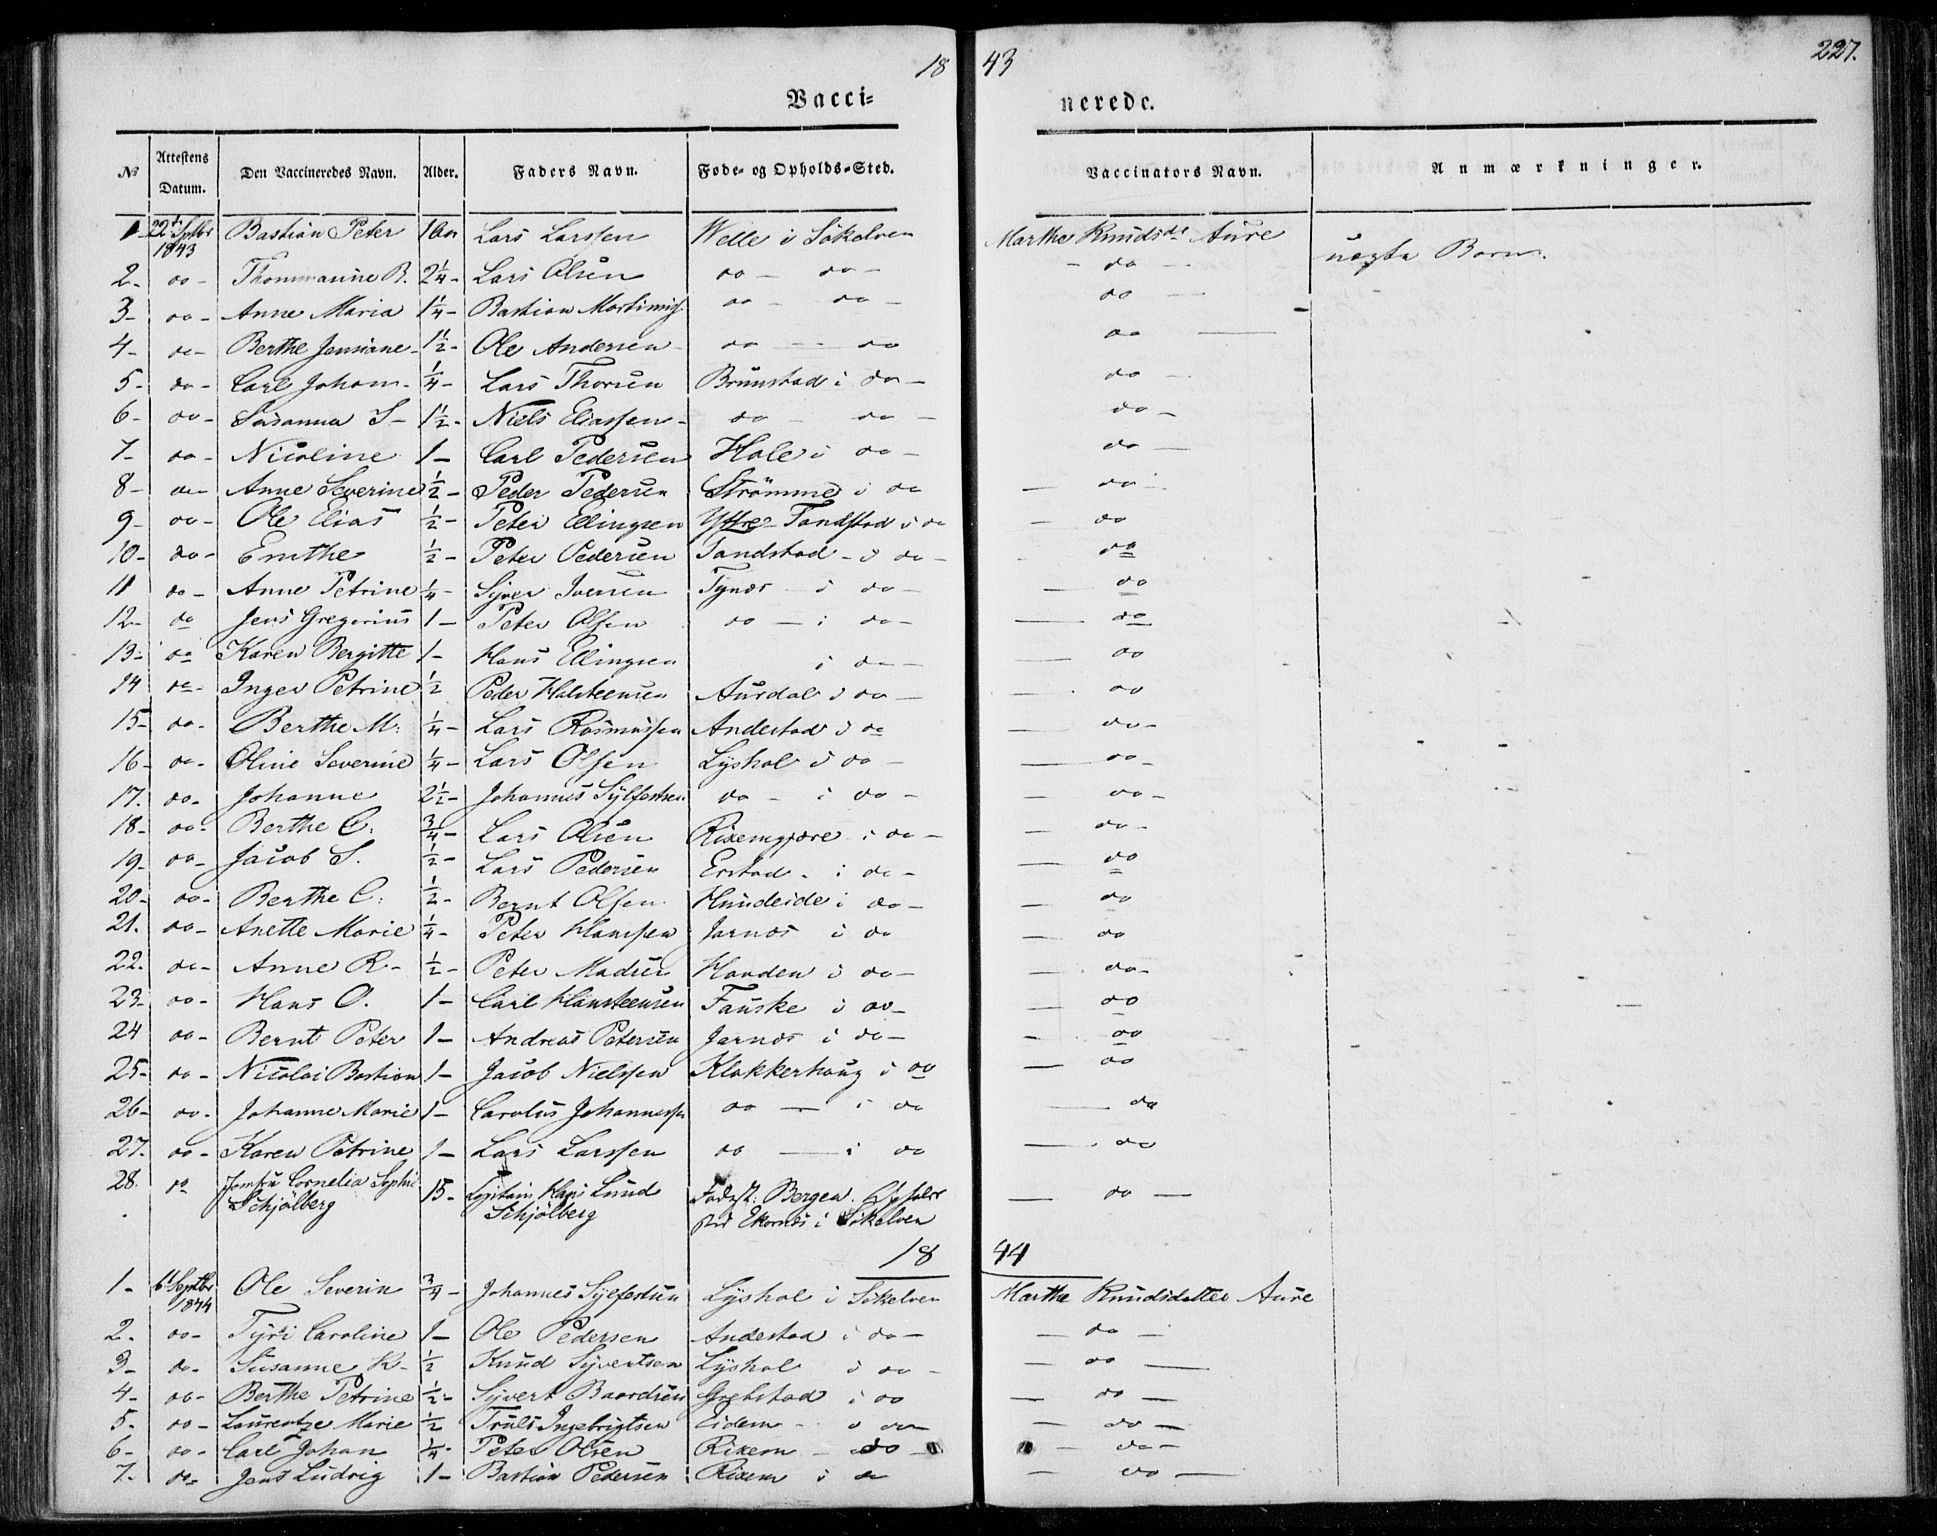 18 43 227.
Vacci= nerede.
No Attestens Datum. Den Vaccineredes Navn. Alder. Faders Navn. Føde- og Opholds-Sted. Vaccinators Navn. Anmærkninger.
1 22 Septbr 1843 Bastian Peter Lars Larssen Welle i Søkelven Marthe Knudsdr Aure uægte Barn.
2- do- Thommasine B. 2¼- Lars Olsen do - do - - do -
3- do- Anne Maria 1¼- Bastian do - do - do -
4- do- Berthe Jensiane- 1½- Ole Andersen do - do do -
5- do- Carl Johan- ¼- Lars Thorsen Brunstad i do - do -
6- do- Susanna S- 1½- Niels Eliassen- do do - do -
7- do- Nicoline 1- Carl Pedersen Hole i do - do -
8- do- Anne Severine ½- Peder Pedersen Strømme i do - do -
9- do- Ole Elias ½- Peter Ellingsen Yttre Tandstad i do - do
10- do- Emthe ½- Peter Pedersen Tandstad - i do - do
11 do- Anne Petrine ¼- Syver Iversen Tynes - i do - - do
12- do Jens Gregorius 1- Peter Olsen do - i do - - do
13- do Karen Bergitte 1- Hans Ellingsen i do - - do
14 do- Inger Petrine ½ Peder Halsteensen Aursdal i do - - do
15- do- Berthe M: ¼- Lars Rasmussen Andestad i do - do-
16- do- Oline Severine ¼- Lars Olsen Lyshol i do - - do-
17. do- Johanne 2½- Johannes Sylfestsen do - i do - - do-
18- do- Berthe C. ¾- Lars Olsen Rixemgjære i do - - do-
19- do- Jacob S. ½- Lars Pedersen Erstad - i do - - do
20- do- Berthe C. ½- Bernt Olsen Hundeide i do - - do
21. do- Anette Marie ¼- Peter Hanssen Jarnes i do - do
22. do- Anne R- ½- Peter Madsen Hauden i do - - do-
23- do- Hans O. 1- Carl Hansteensen Fauske i do - - do
24 do- Bernt Peter 1- Andreas Petersen Jarnes i do - - do
25- do- Nicolai Bastian 1- Jacob Nielssen Klokkerhaug i do - do
26- do- Johanne Marie 1- Carolus Johannessen do - i do - do
27. do- Karen Petrine 1- Lars Larssen do - i do - do
28. do Jomfru Cornelia Sophie 15- Capitain Hans Lund Fødest: Bergen. Ophold - do -
Schjølberg Schjølberg sted Ekornes i Søkelven
18 44
1- 6t Septbr 1844 Ole Severin ¾- Johannes Sylfestsen Lyshol i Søkelven Marthe Knudsdatter Aure
2. do- Tyri Caroline 1- Ole Pedersen Andestad i do - - do -
3- do- Susanne K- ½ Knud Syvertsen Lyshol i do - - do -
4- do- Berthe Petrine ½- Syvert Baardsen Grebstad i do - do -
5. do- Laurentze Marie ½ Truls Ingebrigtsen Eidem - i do - do -
6- do- Carl Johan ¼- Peter Olsen Rixem - do - - do-
7. do- Jens Ludvig 1- Bastian Pedersen Rixem i do - do -